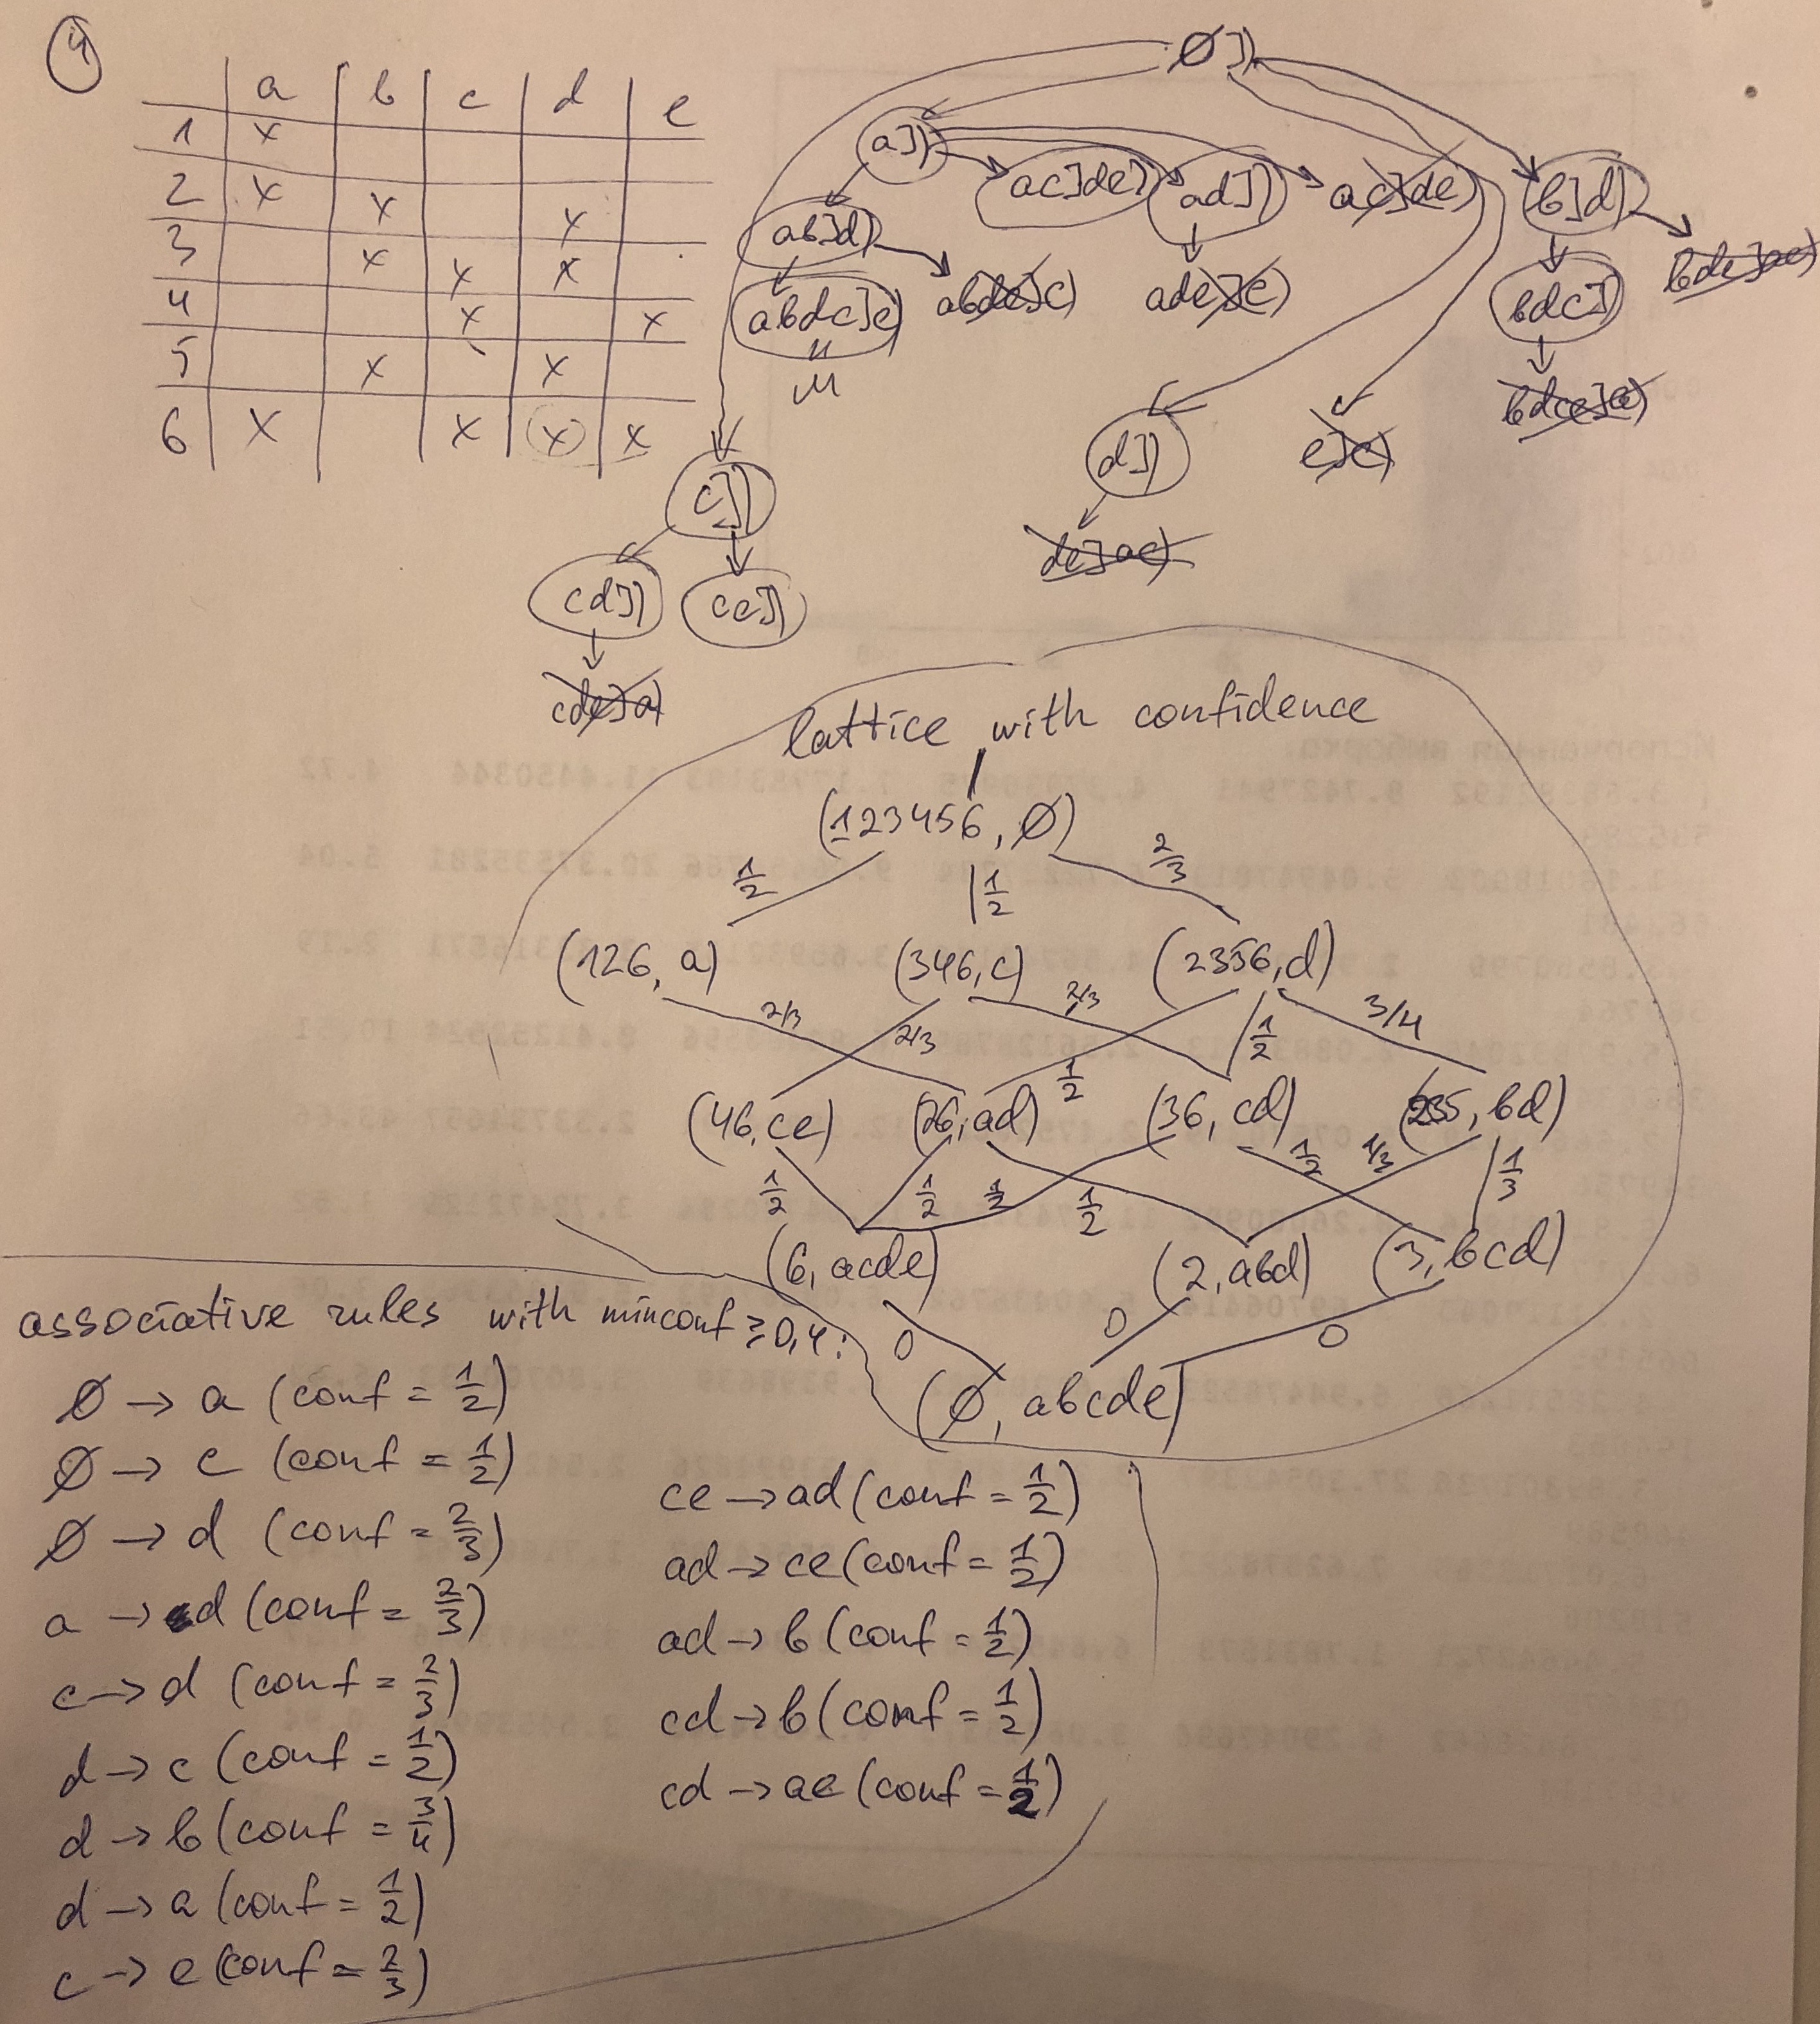 4
a b c d e
1 x
2 x x x
3 x x x
4 x x
5 x x
6 x x x x
∅])
a])
ac]de) ad]) ac]de) b]d)
ab]d) bde]ac)
abdc]e) abde]c) ade]c) bdc])
"
M
bdce]a)
d]) e]c)
c])
de]ac)
cd]) ce])
cde]a)
lattice with confidence
(123456, ∅)
1/2 1/2 2/3
(126, a) (346, c) (2356, d)
2/3 2/3 2/3 1/2 1/2 3/4
(46, ce) (26, ad) (36, cd) (235, bd)
1/2 1/2 1/2 1/2 1/2 1/3 1/3
(6, acde) (2, abd) (3, bcd)
0 0 0
(∅, abcde)
associative rules with minconf ≥ 0,4:
∅ → a (conf = 1/2)
∅ → c (conf = 1/2)
∅ → d (conf = 2/3)
a → d (conf = 2/3)
c → d (conf = 2/3)
d → c (conf = 1/2)
d → b (conf = 3/4)
d → a (conf = 1/2)
c → e (conf = 2/3)
ce → ad (conf = 1/2)
ad → ce (conf = 1/2)
ad → b (conf = 1/2)
cd → b (conf = 1/2)
cd → ae (conf = 1/2)